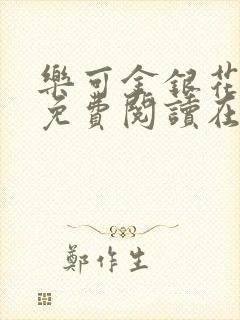 樂可金銀花
免費閱讀在
鄭作生